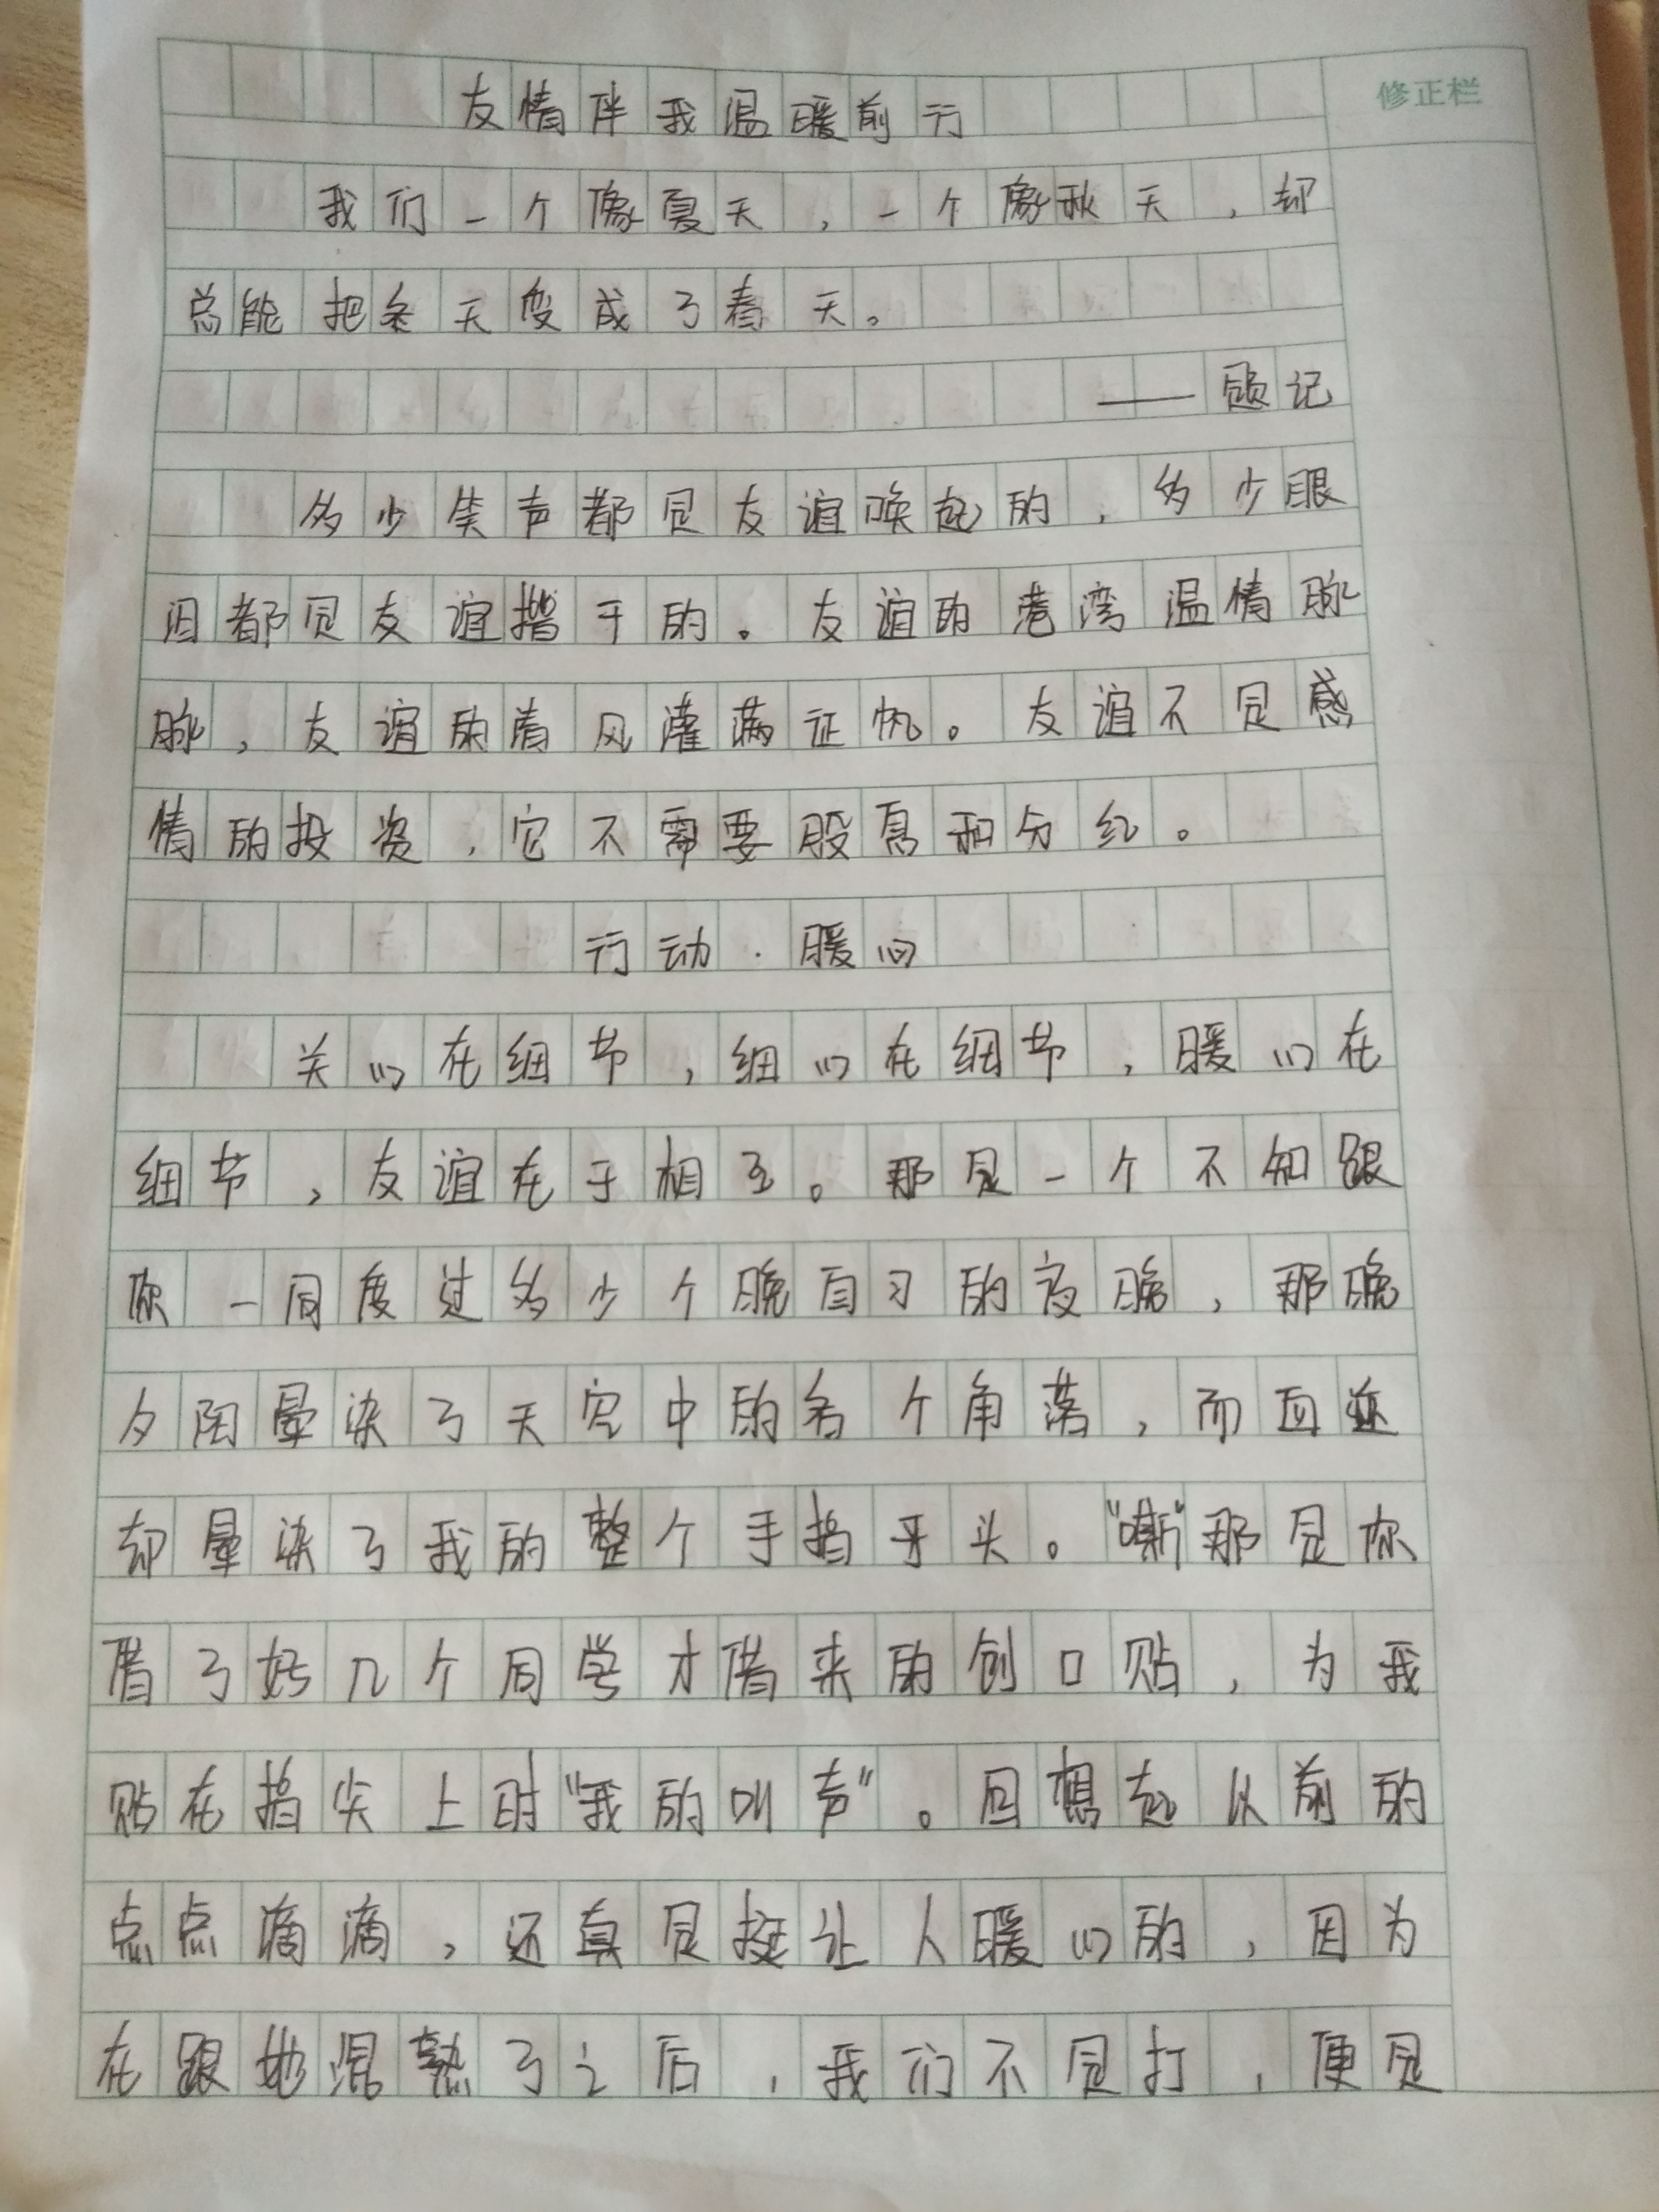 友情伴我温暖前行
修正栏
我们一个像夏天，一个像秋天，却
总能把冬天变成了春天。
——题记
多少笑声都是友谊唤起的，多少眼
泪都是友谊揩干的。友谊的港湾温情脉
脉，友谊的清风灌满征帆。友谊不是感
情的投资，它不需要股息和分红。
行动·暖心
关心在细节，细心在细节，暖心在
细节，友谊在于相互。那是一个不知跟
你一同度过多少个晚自习的夜晚，那晚
夕阳晕染了天空中的各个角落，而血迹
却晕染了我的整个手指手头。“嘶”那是你
借了好几个同学才借来的创口贴，为我
贴在指尖上时“我的叫声”。回想起从前的
点点滴滴，还真是挺让人暖心的，因为
在跟她混熟了之后，我们不是打，便是